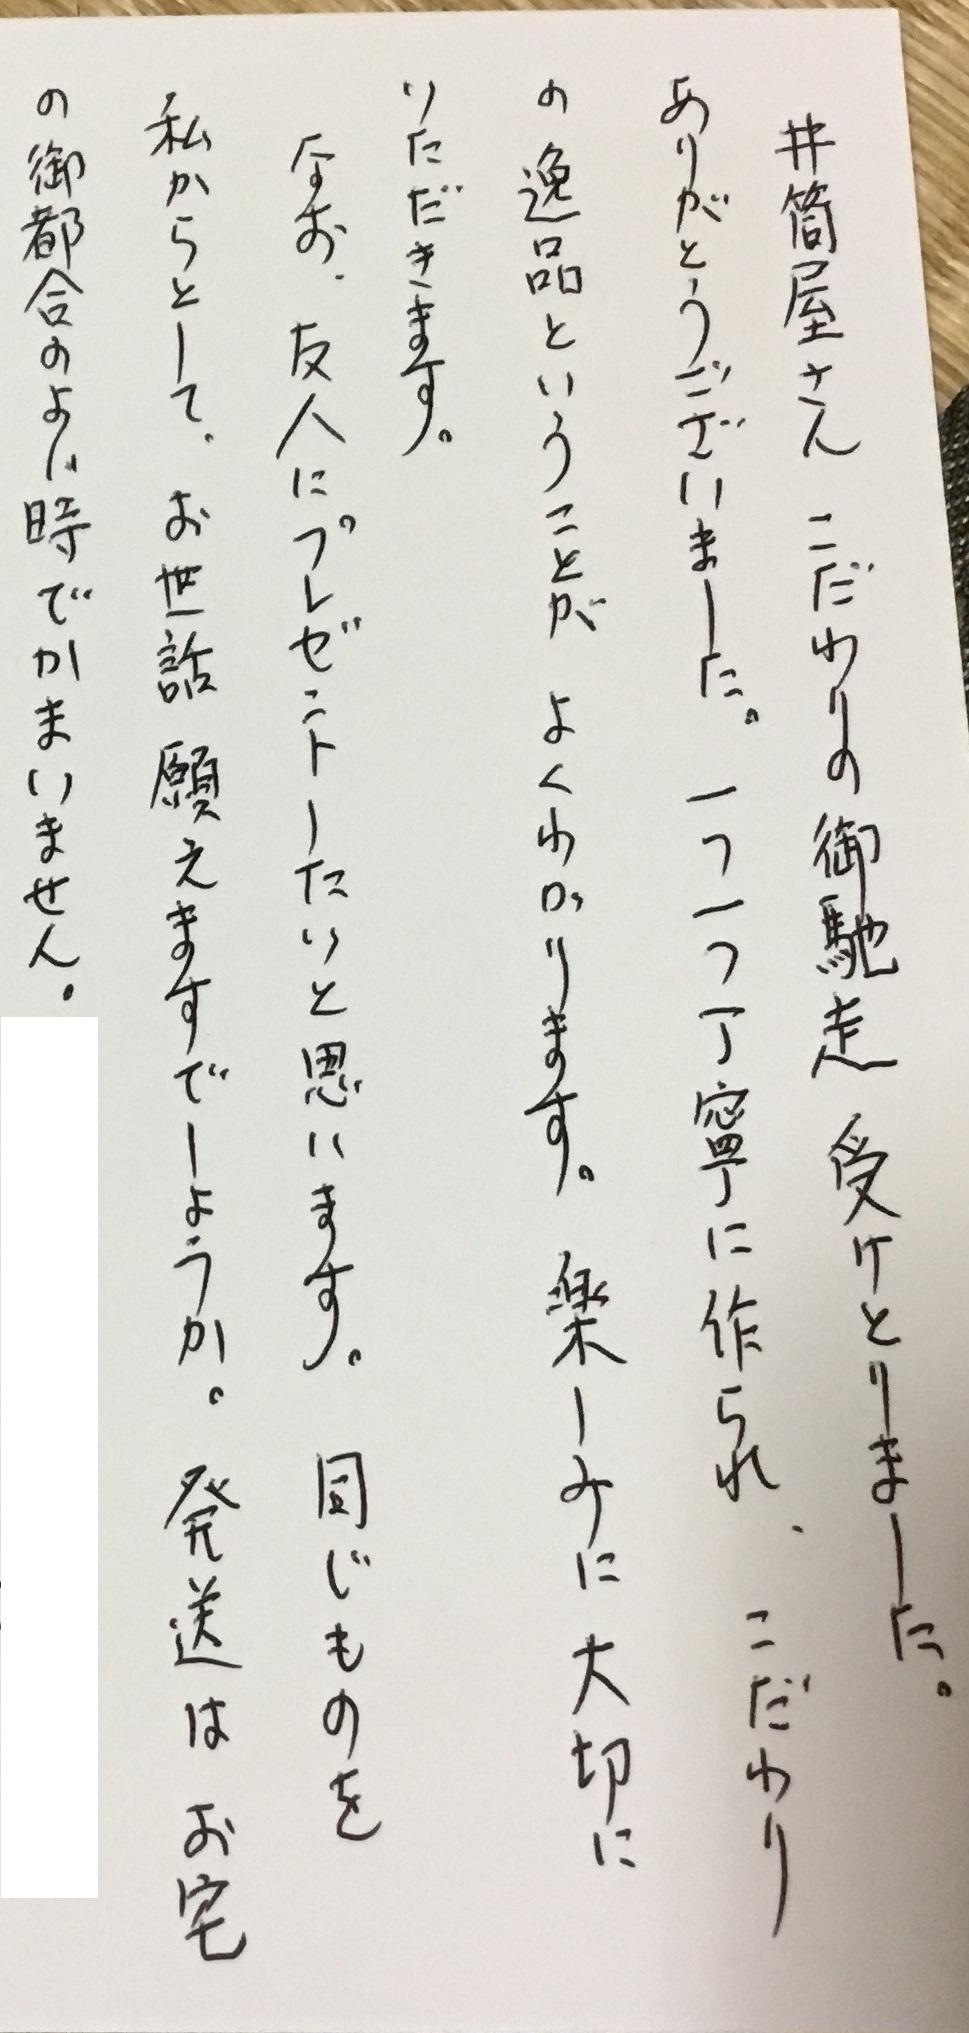 井筒屋さん こだわりの御馳走 受けとりました。
ありがとうございました。一つ一つ丁寧に作られ、こだわり
の逸品ということが よくわかります。楽しみに大切に
いただきます。
なお、友人にプレゼントしたいと思います。同じものを
私からとして、お世話願えますでしょうか。発送は お宅
の御都合のよい時でかまいません。